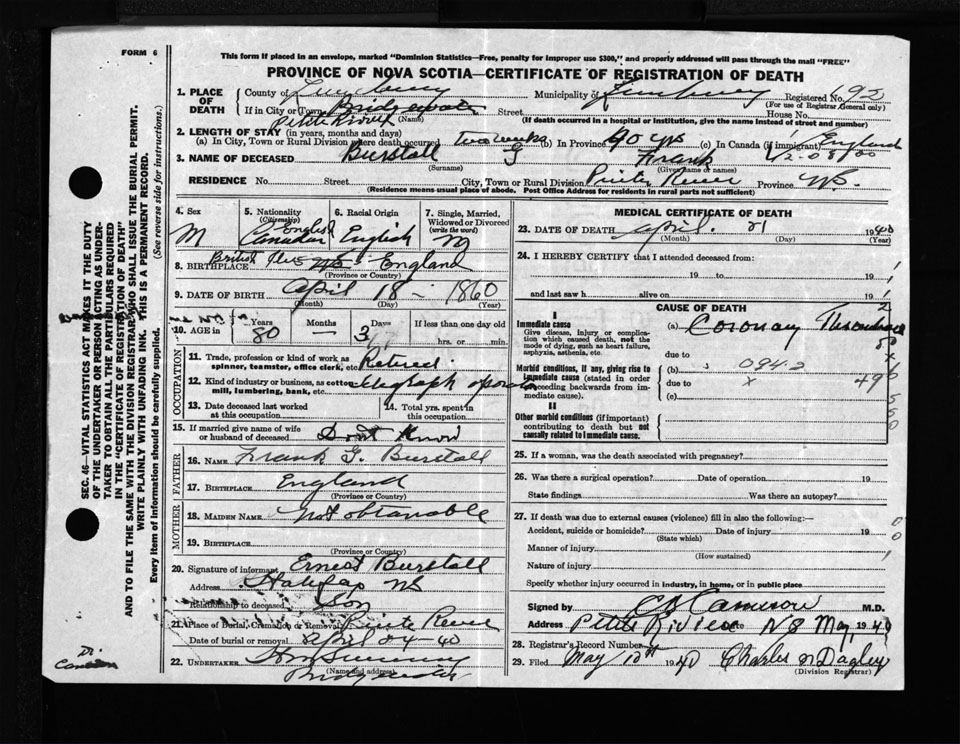 FORM 6
This form if placed in an envelope, marked "Dominion Statistics—Free, penalty for improper use $300," and properly addressed will pass through the mail "FREE"
PROVINCE OF NOVA SCOTIA—CERTIFICATE OF REGISTRATION OF DEATH
1. PLACE OF DEATH County of Lunenburg Municipality of Lunenburg Registered No. 492
(For use of Registrar General only)
If in City or Town Bridgewater Street House No.
Petite Riviere (Name) (If death occurred in a hospital or institution, give the name instead of street and number)
2. LENGTH OF STAY (in years, months and days)
(a) In City, Town or Rural Division where death occurred two weeks (b) In Province 40 yrs (c) In Canada (if immigrant) England
3. NAME OF DECEASED Burstall G Frank
(Surname) (Given name or names)
RESIDENCE No. Street City, Town or Rural Division Petite River Province N.S.
(Residence means usual place of abode. Post Office Address for residents in rural parts not sufficient)
4. Sex M
5. Nationality (Citizenship) English Canadian
6. Racial Origin English
7. Single, Married, Widowed or Divorced (write the word) M
8. BIRTHPLACE British Isles England
(Province or Country)
9. DATE OF BIRTH April 18 - 1860
(Month) (Day) (Year)
10. AGE in Years 80 Months — Days 3 If less than one day old hrs. or min.
OCCUPATION
11. Trade, profession or kind of work as spinner, teamster, office clerk, etc. Retired
12. Kind of industry or business, as cotton mill, lumbering, bank, etc. telegraph operator
13. Date deceased last worked at this occupation
14. Total yrs. spent in this occupation
15. If married give name of wife or husband of deceased Dont Know
FATHER
16. NAME Frank G. Burstall
17. BIRTHPLACE England
(Province or Country)
MOTHER
18. MAIDEN NAME Not obtainable
19. BIRTHPLACE
(Province or Country)
20. Signature of informant Ernest Burstall
Address Halifax NS
Relationship to deceased Son
21. Place of Burial, Cremation or Removal Petite River
Date of burial or removal April 24-40
22. UNDERTAKER
(Name and address)
Bridgewater
MEDICAL CERTIFICATE OF DEATH
23. DATE OF DEATH April 21 1940
(Month) (Day) (Year)
24. I HEREBY CERTIFY that I attended deceased from:
19 to 19
and last saw h alive on 19
CAUSE OF DEATH
I
Immediate cause
Give disease, injury or complication which caused death, not the mode of dying, such as heart failure, asphyxia, asthenia, etc.
(a) Coronary Thrombosis
due to
Morbid conditions, if any, giving rise to immediate cause (stated in order proceeding backwards from immediate cause).
(b) 094.2
due to
(c)
II
Other morbid conditions (if important) contributing to death but not causally related to immediate cause.
25. If a woman, was the death associated with pregnancy?
26. Was there a surgical operation? Date of operation 19
State findings Was there an autopsy?
27. If death was due to external causes (violence) fill in also the following:—
Accident, suicide or homicide? Date of injury 19
(State which)
Manner of injury
(How sustained)
Nature of injury
Specify whether injury occurred in industry, in home, or in public place
Signed by C B Cameron M.D.
Address Petite Riviere NS Date May 1940
28. Registrar's Record Number 4
29. Filed May 10th 1940 Charles N Dagley
(Division Registrar)
SEC. 46—VITAL STATISTICS ACT MAKES IT THE DUTY
OF THE UNDERTAKER OR PERSON ACTING AS UNDER-
TAKER TO OBTAIN ALL THE PARTICULARS REQUIRED
IN THE "CERTIFICATE OF REGISTRATION OF DEATH"
AND TO FILE THE SAME WITH THE DIVISION REGISTRAR WHO SHALL ISSUE THE BURIAL PERMIT.
WRITE PLAINLY WITH UNFADING INK. THIS IS A PERMANENT RECORD.
Every item of information should be carefully supplied. (See reverse side for instructions.)
Dr. Cameron